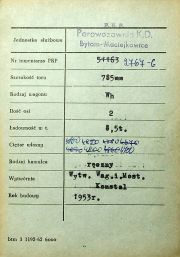 P.K.P.
Jednostka służbowa
Parowozownia K.D.
Bytom-Maciejkowice
Nr inwentarza PKP 51163 2767-G
Szerokość toru 785mm
Rodzaj wagonu Wh
Ilość osi 2
Ładowność w t. 8,5t.
Ciężar własny
Rodzaj hamulca ręczny
Wytwórnia Wytw. Wag.i.Most.
Konstal
Rok budowy 1953r.